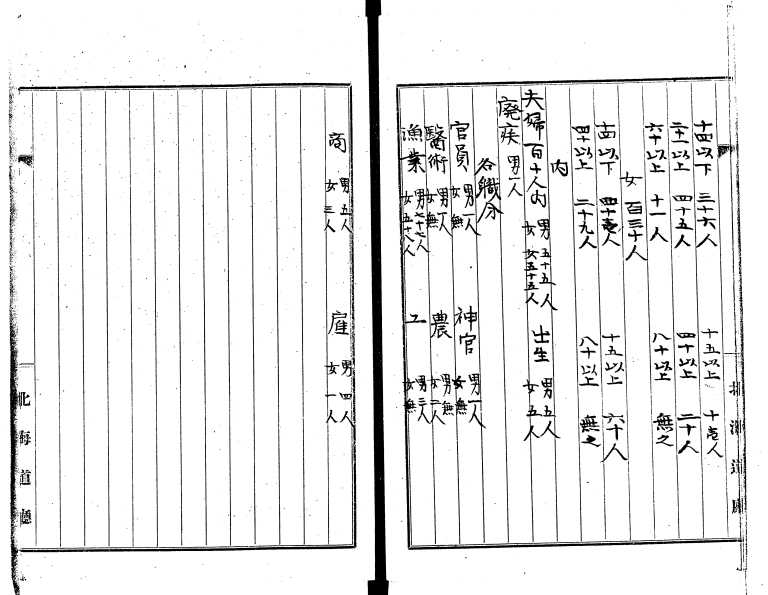 十四以下 三十六人 十五以上 十壱人
二十一以上 四十五人 四十以上 二十人
六十以上 十一人 八十以上 無之
女 百三十人
十四以下 四十壱人 十五以上 六十人
四十以上 二十九人 八十以上 無之
内
夫婦 百十人内 男 五十五人 女 五十五人 出生 男 五人 女 五人
廃疾 男一人
各職分
官員 男一人 女無 神官 男一人 女無
醫術 男一人 女無 農 男無 女二人
漁業 男七十七人 女五十八人 工 男三人 女無
北海道廳
商 男五人 女三人 雇 男四人 女一人
北海道廳